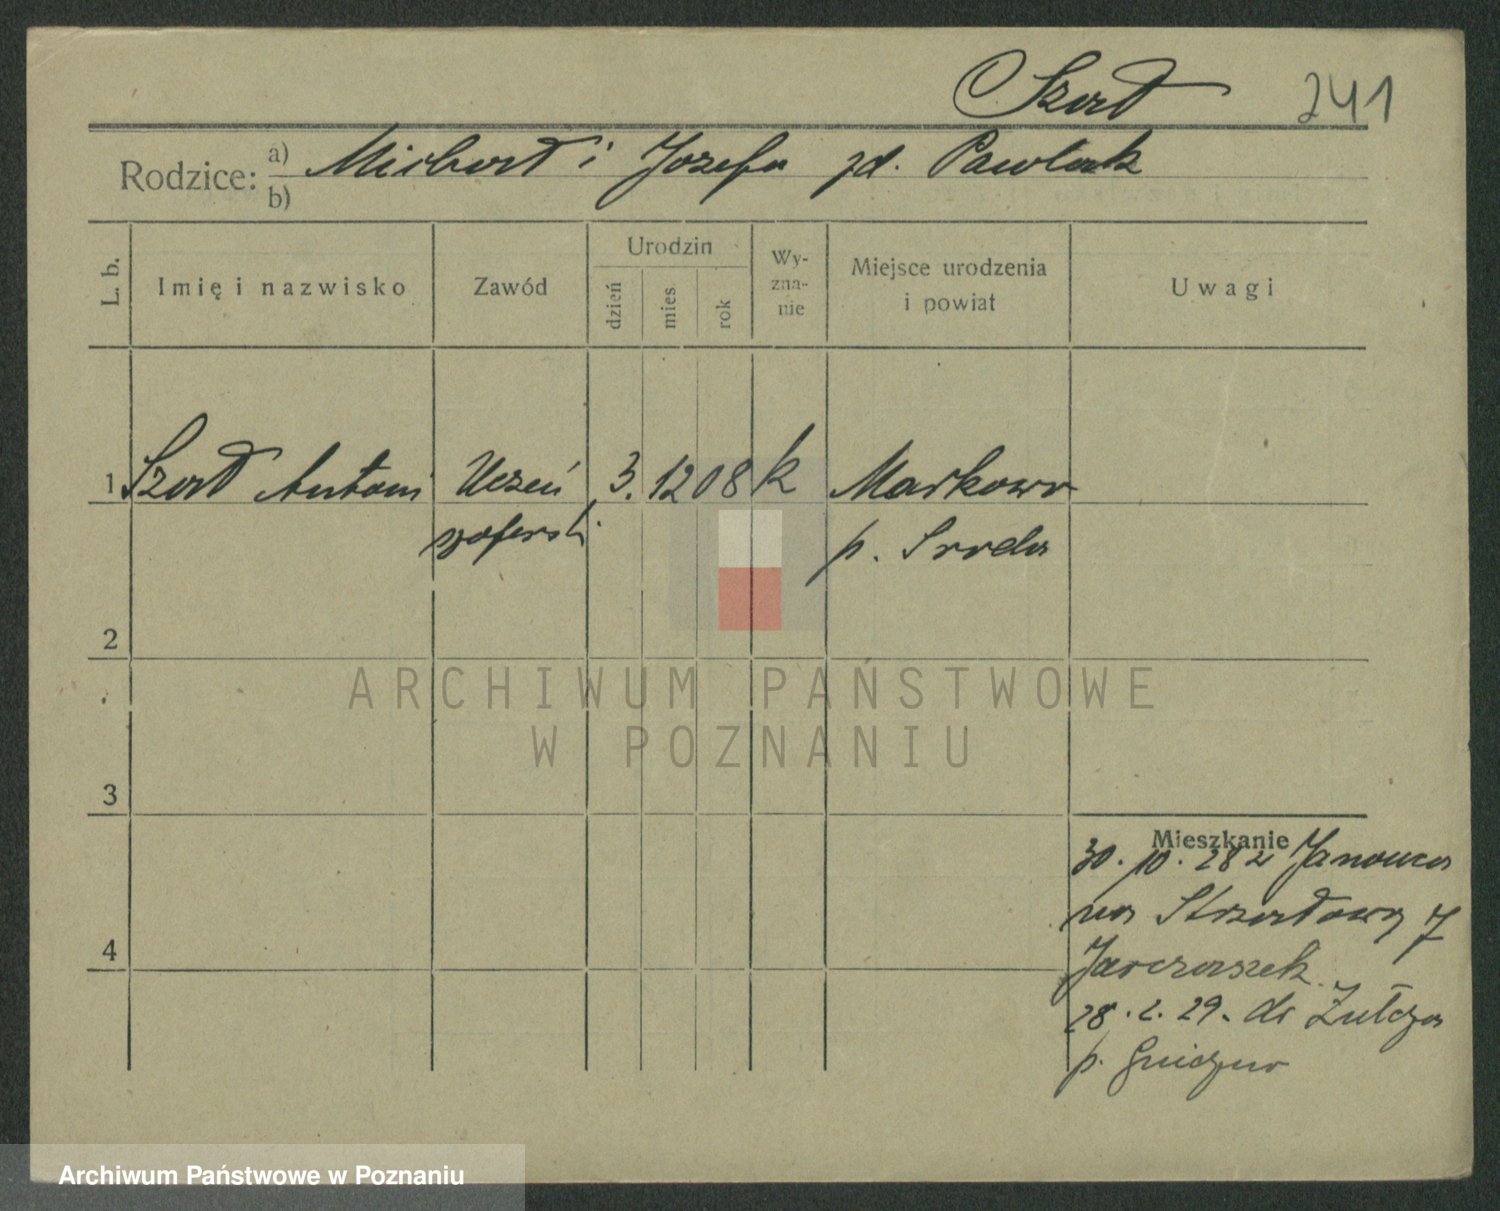 Szard 241
Rodzice: a) Michał i Józefa zd. Pawlak
b)
L. b. Imię i nazwisko Zawód Urodzin dzień mies rok Wy-zna-nie Miejsce urodzenia i powiat Uwagi
1 Antoni Uczeń 3. 12 08 k Markowo
szoferski p. Środa
2
ARCHIWUM PAŃSTWOWE
W POZNANIU
3
Mieszkanie
30. 10. 28 z Janowca
na 7
Jarczaszek
28. 2. 29. do
p. Gniezno
4
Archiwum Państwowe w Poznaniu